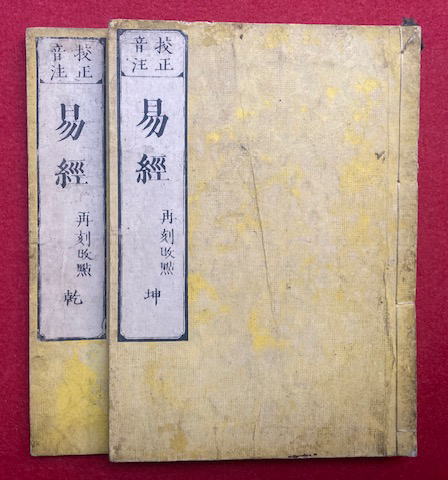 挍正
音注
易經
再刻改點
乾
挍正
音注
易經
再刻改點
坤